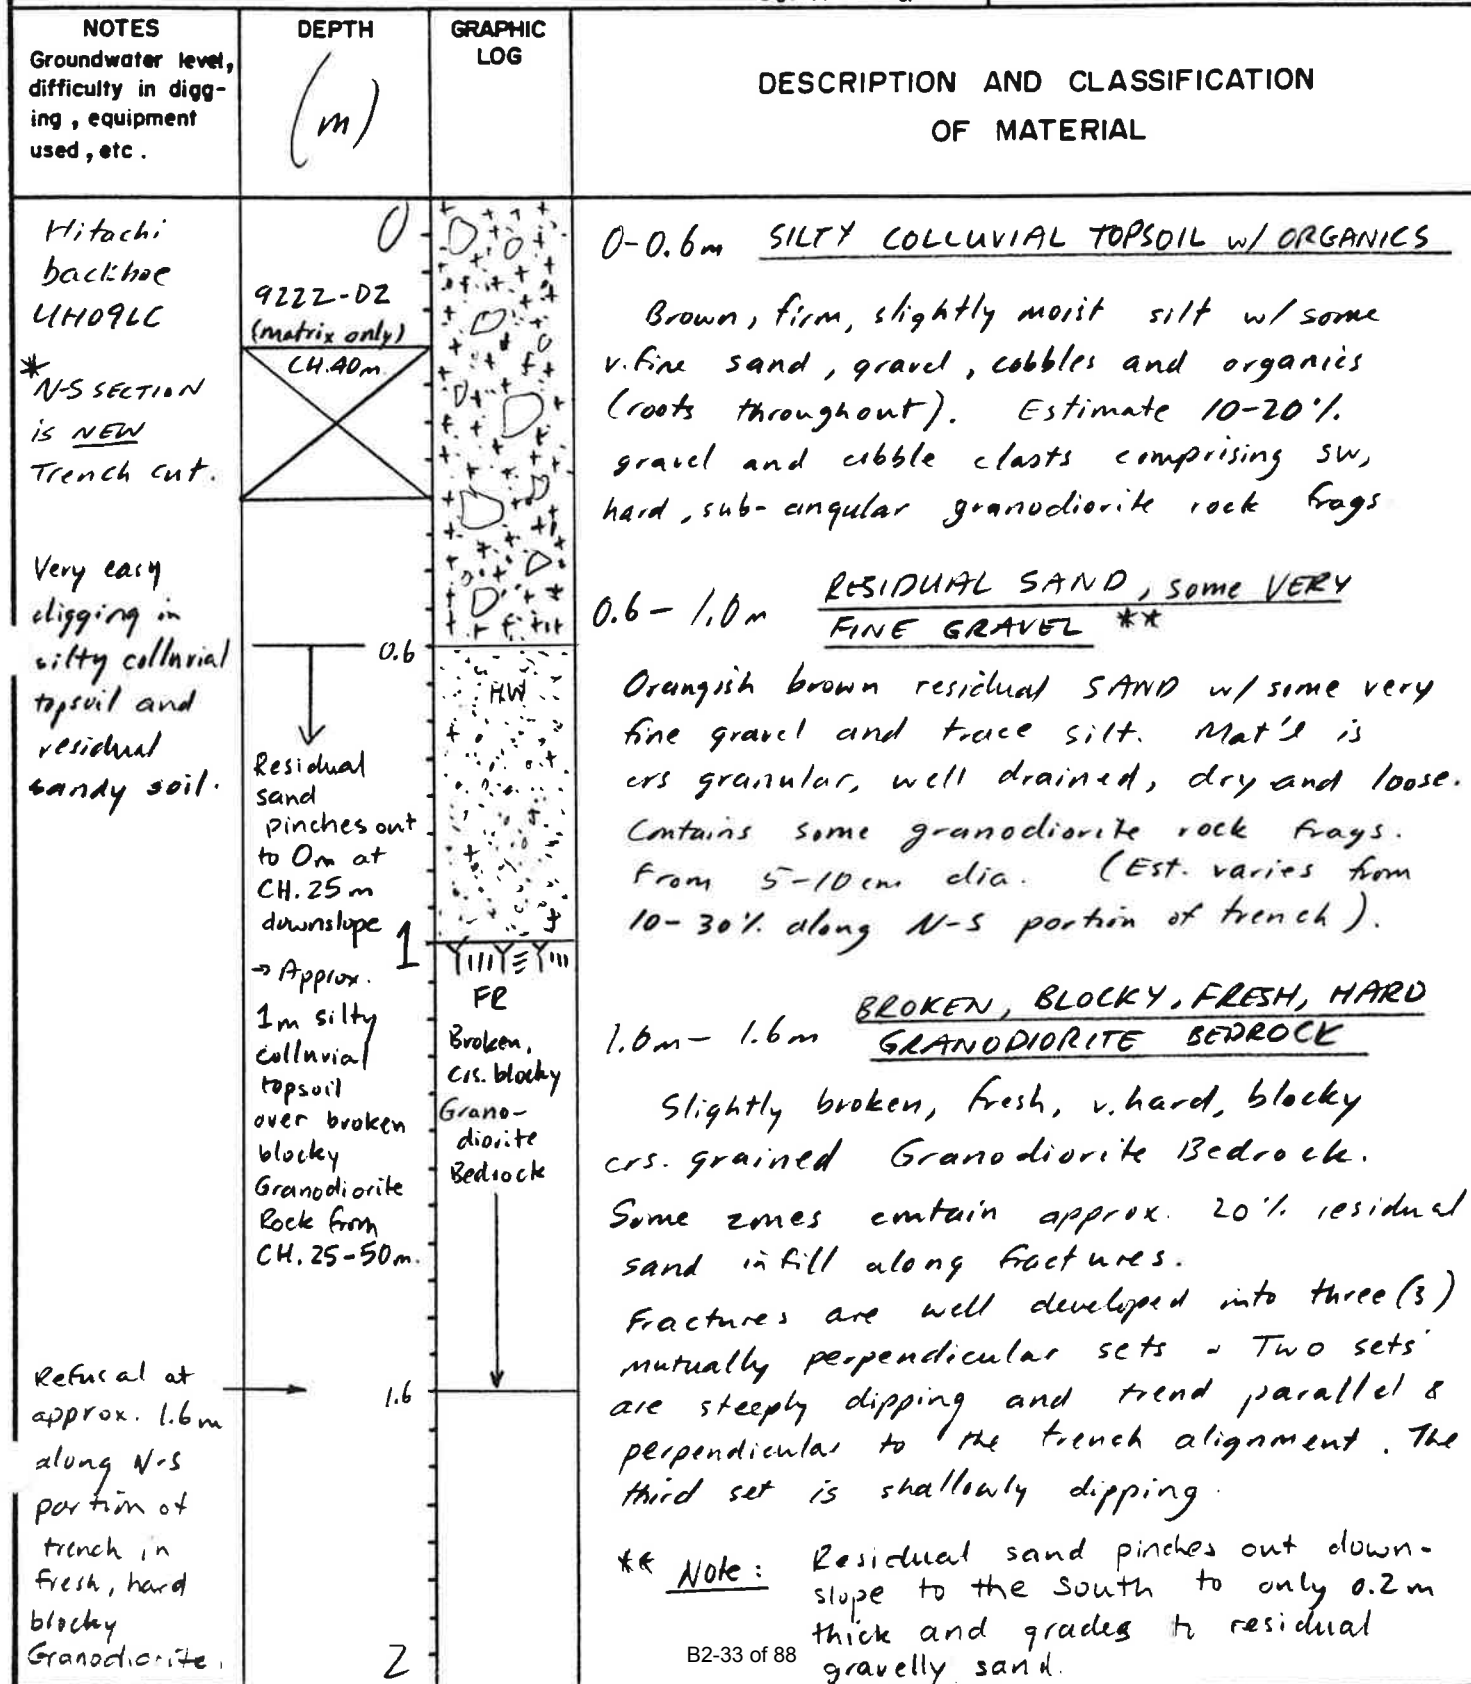 NOTES
Groundwater level,
difficulty in digg-
ing, equipment
used, etc.
DEPTH
(m)
GRAPHIC
LOG
DESCRIPTION AND CLASSIFICATION
OF MATERIAL
Hitachi
backhoe
UH09LC
*
N-S SECTION
is NEW
Trench cut.
Very easy
digging in
silty colluvial
topsoil and
residual
sandy soil.
Refusal at
approx. 1.6m
along N-S
portion of
trench in
fresh, hard
blocky
Granodiorite.
0
9222-D2
(matrix only)
CH.40m
0.6
Residual
sand
pinches out
to 0m at
CH. 25m
downslope
1
→ Approx.
1m silty
colluvial
topsoil
over broken
blocky
Granodiorite
Rock from
CH. 25-50m.
1.6
2
HW
FR
Broken,
crs. blocky
Grano-
diorite
Bedrock
0-0.6m SILTY COLLUVIAL TOPSOIL w/ ORGANICS
Brown, firm, slightly moist silt w/ some
v.fine sand, gravel, cobbles and organics
(roots throughout). Estimate 10-20%
gravel and cobble clasts comprising SW,
hard, sub-angular granodiorite rock frags
0.6 - 1.0m RESIDUAL SAND, some VERY
FINE GRAVEL **
Orangish brown residual SAND w/ some very
fine gravel and trace silt. Mat'l is
crs granular, well drained, dry and loose.
Contains some granodiorite rock frags.
From 5-10cm dia. (Est. varies from
10-30% along N-S portion of trench).
1.0m - 1.6m BROKEN, BLOCKY, FRESH, HARD
GRANODIORITE BEDROCK
Slightly broken, fresh, v.hard, blocky
crs. grained Granodiorite Bedrock.
Some zones contain approx. 20% residual
sand infill along fractures.
Fractures are well developed into three (3)
mutually perpendicular sets. Two sets
are steeply dipping and trend parallel &
perpendicular to the trench alignment. The
third set is shallowly dipping.
** Note: Residual sand pinches out down-
slope to the South to only 0.2m
thick and grades to residual
gravelly sand.
B2-33 of 88